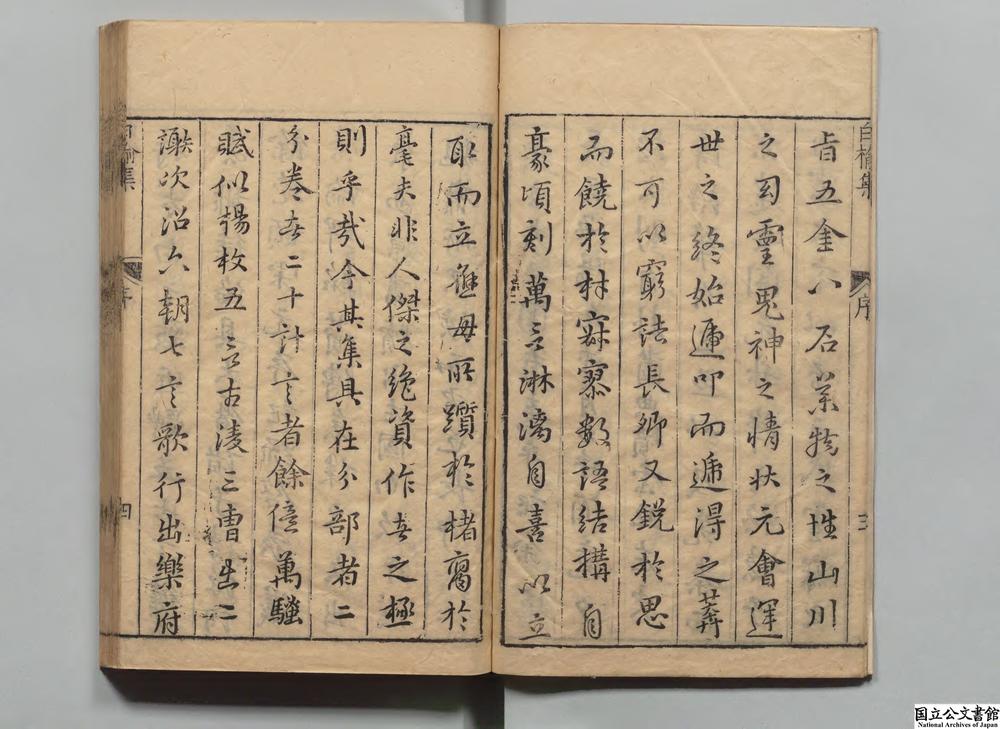 白榆集
序
三
旨五金八石業物之性山川
之司靈鬼神之情状元會運
世之終始逓叩而逓得之莽
不可以窮詰長卿又鋭於思
而饒於材寂寥数語結搆自
豪頃刻萬言淋漓自喜以立
取而立進毋所躓於楮腐於
毫夫非人傑之絶資作者之極
則乎哉今其集具在分部者二
分巻者二十計言者餘億萬騷
賦似楊枚五言古凌三曹出二
謝次沿六朝七言歌行出樂府
白榆集
序
四
国立公文書館
National Archives of Japan